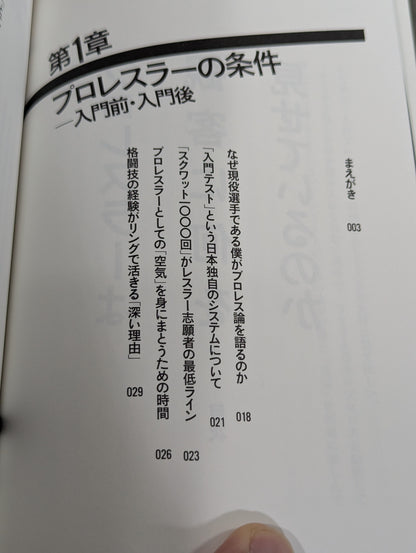 第1章
プロレスラーの条件
―入門前・入門後
まえがき 003
なぜ現役選手である僕がプロレス論を語るのか 018
「入門テスト」という日本独自のシステムについて 021
「スクワット一〇〇〇回」がレスラー志願者の最低ライン 023
プロレスラーとしての「空気」を身にまとうための時間 026
格闘技の経験がリングで活きる「深い理由」 029